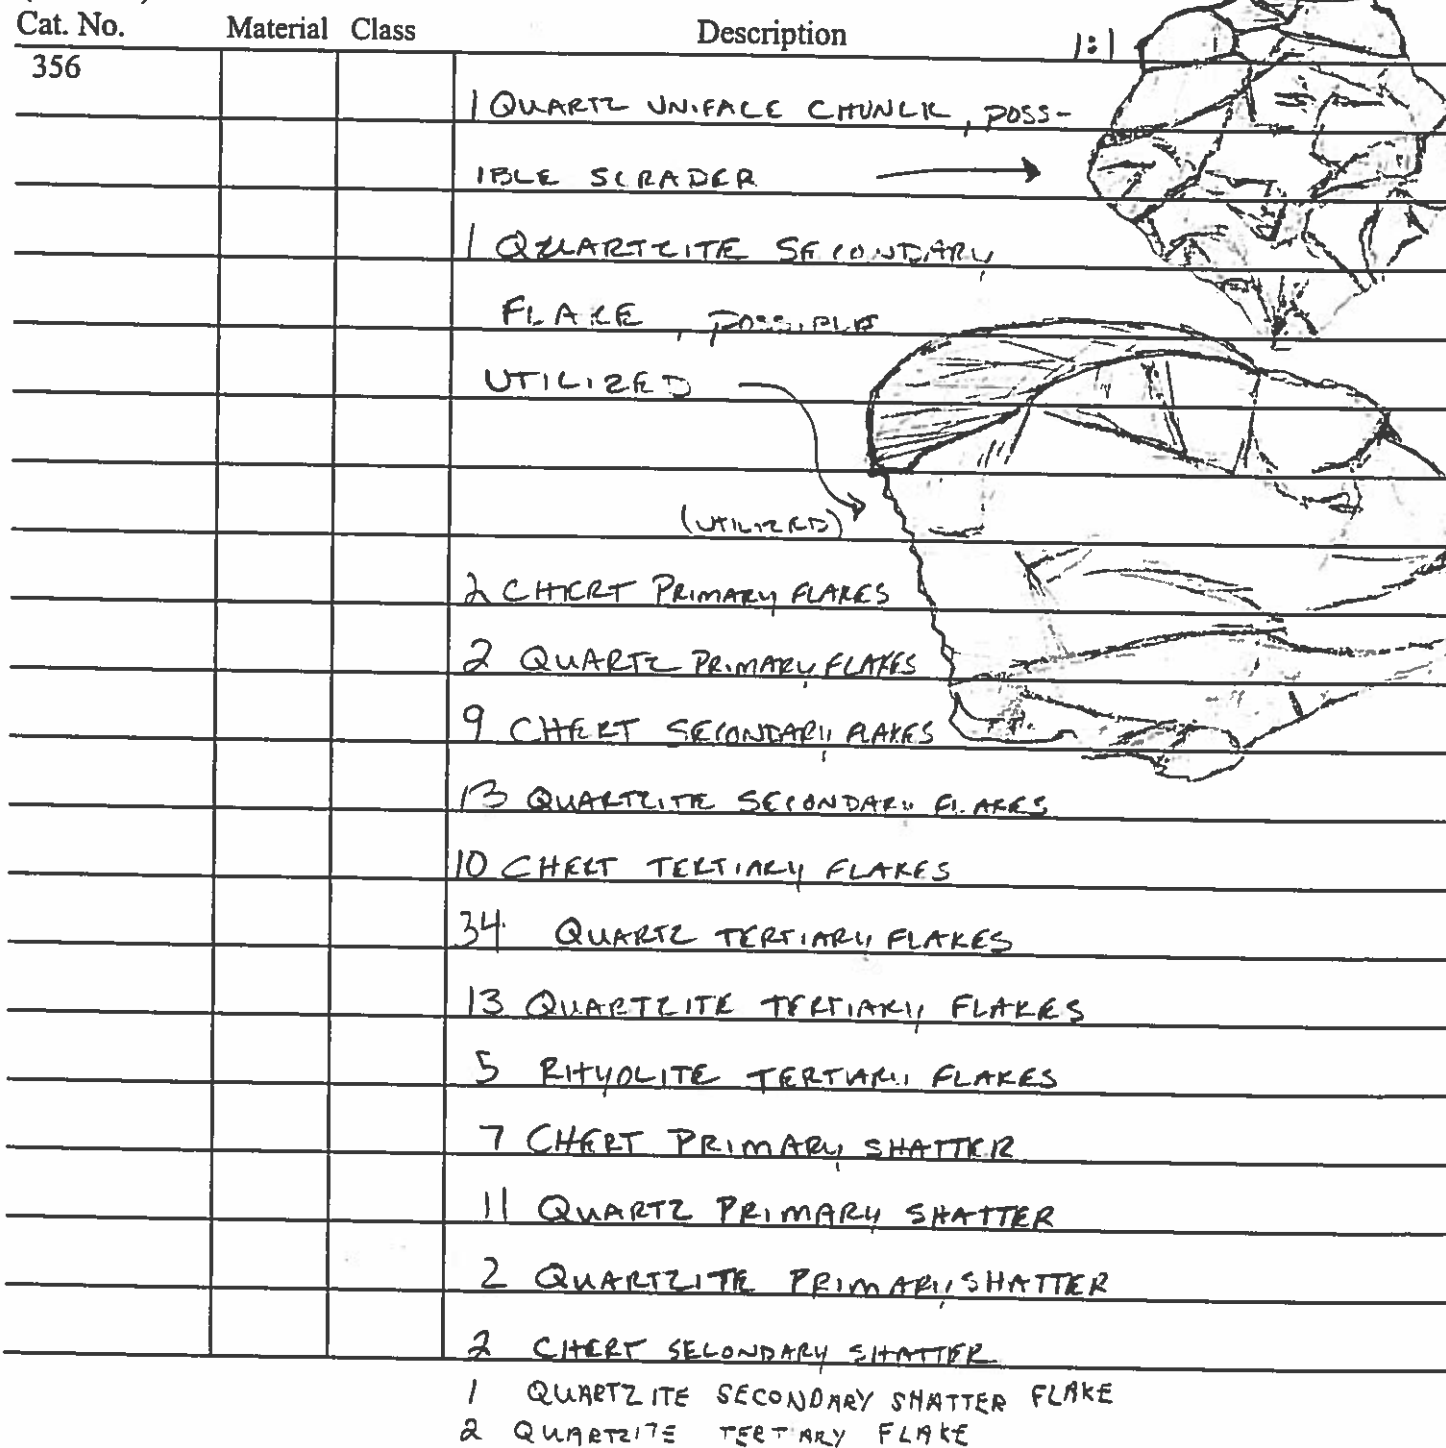 Cat. No. Material Class Description 1:1
356
1 QUARTZ UNIFACE CHUNK, POSS-
IBLE SCRAPER
1 QUARTZITE SECONDARY
FLAKE, POSSIBLE
UTILIZED
(UTILIZED)
2 CHERT PRIMARY FLAKES
2 QUARTZ PRIMARY FLAKES
9 CHERT SECONDARY FLAKES
13 QUARTZITE SECONDARY FLAKES
10 CHERT TERTIARY FLAKES
34 QUARTZ TERTIARY FLAKES
13 QUARTZITE TERTIARY FLAKES
5 RHYOLITE TERTIARY FLAKES
7 CHERT PRIMARY SHATTER
11 QUARTZ PRIMARY SHATTER
2 QUARTZITE PRIMARY SHATTER
2 CHERT SECONDARY SHATTER
1 QUARTZITE SECONDARY SHATTER FLAKE
2 QUARTZITE TERTIARY FLAKE